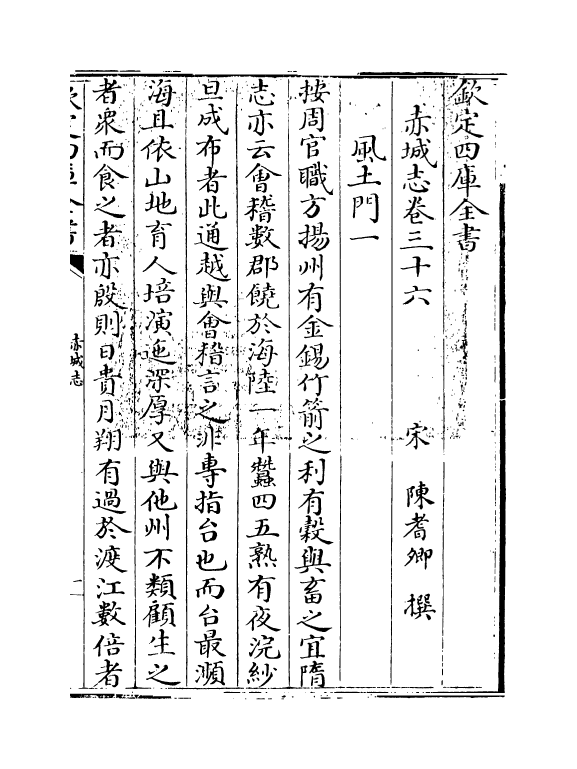 欽定四庫全書
赤城志卷三十六 宋 陳耆卿 撰
風土門一
按周官職方揚州有金錫竹箭之利有穀與畜之宜隋
志亦云會稽數郡饒於海陸一年蠶四五熟有夜浣紗
旦成布者此通越與會稽言之非專指台也而台最瀕
海且依山地育人培演迤深厚又與他州不類顧生之
者衆而食之者亦殷則日貴月翔有過於渡江數倍者
欽定四庫全書
赤城志